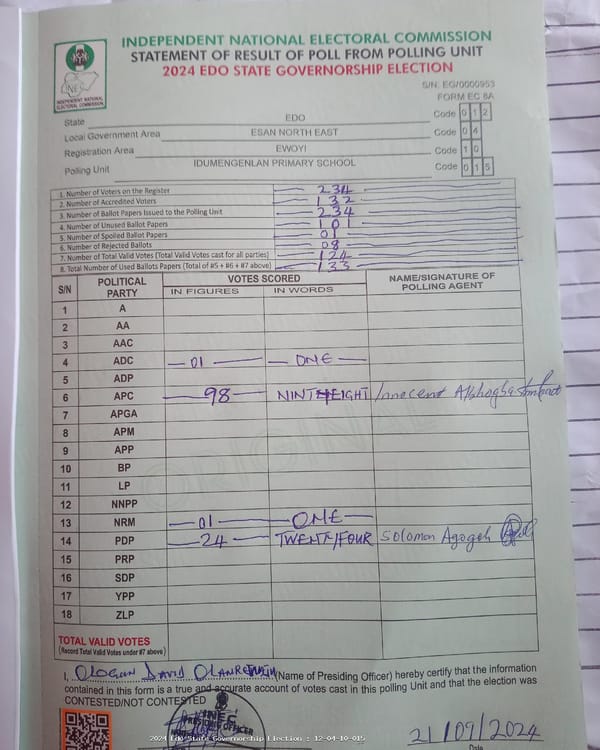 INDEPENDENT NATIONAL ELECTORAL COMMISSION
STATEMENT OF RESULT OF POLL FROM POLLING UNIT
2024 EDO STATE GOVERNORSHIP ELECTION
INDEPENDENT NATIONAL ELECTORAL COMMISSION
S/N. EG/0000953
FORM EC 8A
State EDO Code 0 1 2
Local Government Area ESAN NORTH EAST Code 0 4
Registration Area EWOYI Code 1 0
Polling Unit IDUMENGENLAN PRIMARY SCHOOL Code 0 1 5
1. Number of Voters on the Register 234
2. Number of Accredited Voters 132
3. Number of Ballot Papers Issued to the Polling Unit 234
4. Number of Unused Ballot Papers 101
5. Number of Spoiled Ballot Papers 01
6. Number of Rejected Ballots 08
7. Number of Total Valid Votes (Total Valid Votes cast for all parties) 124
8. Total Number of Used Ballots Papers (Total of #5 + #6 + #7 above) 133
S/N POLITICAL PARTY VOTES SCORED NAME/SIGNATURE OF POLLING AGENT
IN FIGURES IN WORDS
1 A
2 AA
3 AAC
4 ADC 01 ONE
5 ADP
6 APC 98 Innocent
7 APGA
8 APM
9 APP
10 BP
11 LP
12 NNPP
13 NRM 01 ONE
14 PDP 24 TWENTY/FOUR Solomon Agogeh
15 PRP
16 SDP
17 YPP
18 ZLP
TOTAL VALID VOTES
(Record Total Valid Votes under #7 above)
I, OLOGUN DAVID (Name of Presiding Officer) hereby certify that the information
contained in this form is a true and accurate account of votes cast in this polling Unit and that the election was
CONTESTED/NOT CONTESTED
21/09/2024
Date
2024 Edo State Governorship Election : 12-04-10-015